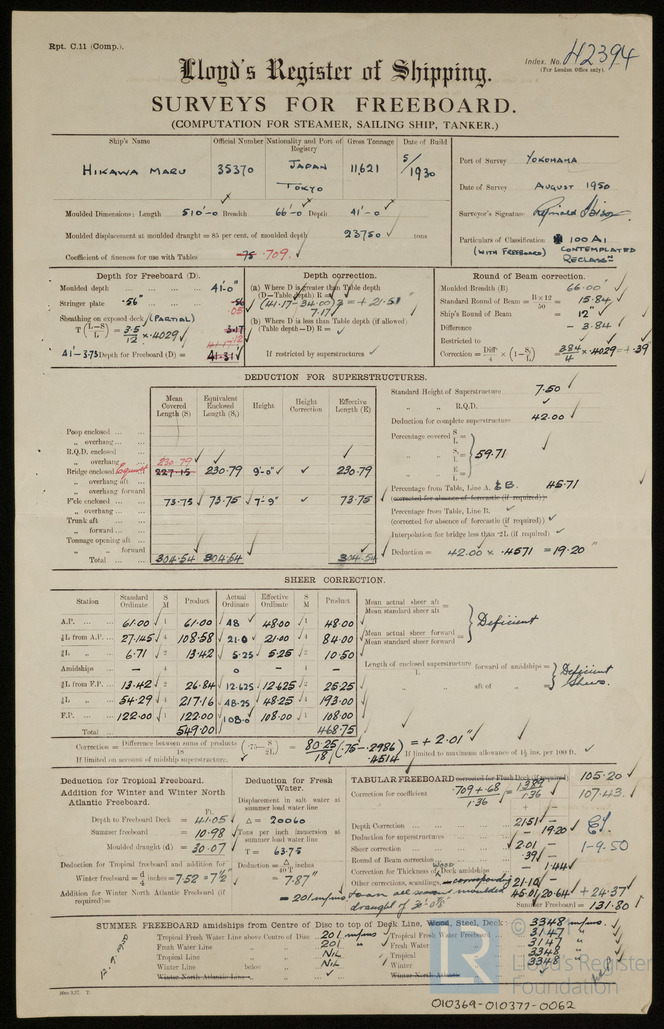 Rpt. C.11 (Comp.).
Index. No. 42394
(For London Office only).
Lloyd's Register of Shipping.
SURVEYS FOR FREEBOARD.
(COMPUTATION FOR STEAMER, SAILING SHIP, TANKER.)
Ship's Name Official Number Nationality and Port of Registry Gross Tonnage Date of Build
HIKAWA MARU 35370 JAPAN TOKYO 11,621 5/1930
Port of Survey YOKOHAMA
Date of Survey AUGUST 1950
Surveyor's Signature
Particulars of Classification 100 A1
(WITH FREEBOARD) CONTEMPLATED
RECLASSN
Moulded Dimensions: Length 510'-0 Breadth 66'-0 Depth 41'-0
Moulded displacement at moulded draught = 85 per cent. of moulded depth 23750 tons
Coefficient of fineness for use with Tables .75 .709
Depth for Freeboard (D).
Moulded depth 41'-0"
Stringer plate .56" .56
.05
Sheathing on exposed deck (PARTIAL)
T (L-S/L) = 3.5/12 × .4029 3.17
41'-3.73 Depth for Freeboard (D) = 41.31
Depth correction.
(a) Where D is greater than Table depth
(D-Table depth) R =
(41.17-34.00) 3 = + 21.51"
7.17
(b) Where D is less than Table depth (if allowed)
(Table depth-D) R =
If restricted by superstructures
Round of Beam correction.
Moulded Breadth (B) 66.00"
Standard Round of Beam = B×12/50 = 15.84
Ship's Round of Beam = 12"
Difference - 3.84
Restricted to
Correction = Diffce/4 × (1-S1/L) = 3.84/4 × .4029 = + .39
DEDUCTION FOR SUPERSTRUCTURES.
Mean Covered Length (S) Equivalent Enclosed Length (S1) Height Height Correction Effective Length (E)
Poop enclosed
„ overhang
R.Q.D. enclosed
„ overhang 230.79
Bridge enclosed 227.15 230.79 9'-0" 230.79
„ overhang aft
„ overhang forward
F'cle enclosed 73.75 73.75 7'-9" 73.75
„ overhang
Trunk aft
„ forward
Tonnage opening aft
„ „ forward
Total 304.54 304.54 304.54
Standard Height of Superstructure 7.50
„ „ R.Q.D.
Deduction for complete superstructure 42.00
Percentage covered S/L =
„ „ S1/L = 59.71
„ „ E/L =
Percentage from Table, Line A. & B. 45.71
(corrected for absence of forecastle (if required))
Percentage from Table, Line B.
(corrected for absence of forecastle (if required))
Interpolation for bridge less than ·2L (if required)
Deduction = 42.00 × .4571 = 19.20"
SHEER CORRECTION.
Station Standard Ordinate S M Product Actual Ordinate Effective Ordinate S M Product
A.P. 61.00 1 61.00 48 48.00 1 48.00
⅙L from A.P. 27.145 4 108.58 21.0 21.00 4 84.00
⅓L „ 6.71 2 13.42 5.25 5.25 2 10.50
Amidships — 4 0 — 4
⅓L from F.P. 13.42 2 26.84 12.625 12.625 2 25.25
⅙L „ 54.29 4 217.16 48.25 48.25 4 193.00
F.P. 122.00 1 122.00 108.0 108.00 1 108.00
Total 549.00 468.75
Mean actual sheer aft
Mean standard sheer aft =
Deficient
Mean actual sheer forward
Mean standard sheer forward =
Length of enclosed superstructure forward of amidships =
L
„ „ aft of „ =
Deficient
Sheer.
Correction = Difference between sums of products/18 (·75-S/2L) = 80.25/18 (.75-.2986) = + 2.01"
.4514
If limited on account of midship superstructure. If limited to maximum allowance of 1½ ins. per 100 ft.
Deduction for Tropical Freeboard.
Addition for Winter and Winter North Atlantic Freeboard.
Ft.
Depth to Freeboard Deck = 41.05
Summer freeboard = 10.98
Moulded draught (d) = 30.07
Deduction for Tropical freeboard and addition for
Winter freeboard = d/4 inches = 7.52 = 7½"
Addition for Winter North Atlantic Freeboard (if required) =
Deduction for Fresh Water.
Displacement in salt water at summer load water line
Δ = 20060
Tons per inch immersion at summer load water line
T = 63.75
Deduction = Δ/40 T inches
= 7.87"
= 201 m/ms
TABULAR FREEBOARD corrected for Flush Deck (if required) 105.20
Correction for coefficient .709+.68/1.36 = 1.389/1.36 107.43
+ —
Depth Correction 21.51 —
Deduction for superstructures — 19.20
Sheer correction 2.01 —
Round of Beam correction .39 —
Correction for Thickness of Wood Deck amidships — 1.44
Other corrections, scantlings, corresponding 21.10
to an all seasons moulded 45.01 20.64 + 24.37
draught of 30'-0⅞"
Summer Freeboard = 131.80
1-9.50
SUMMER FREEBOARD amidships from Centre of Disc to top of Deck Line, Wood, Steel, Deck 3348 m/ms.
Tropical Fresh Water Line above Centre of Disc 201 m/ms Tropical Fresh Water Freeboard 3147 „
Fresh Water Line „ „ 201 „ Fresh Water „ 3147 „
Tropical Line „ „ NIL Tropical „ 3348 „
Winter Line below „ „ NIL Winter „ 3348 „
Winter North Atlantic Line Winter North Atlantic
12.9.1950
© Lloyd's Register
Foundation
LR
010369-010377-0062